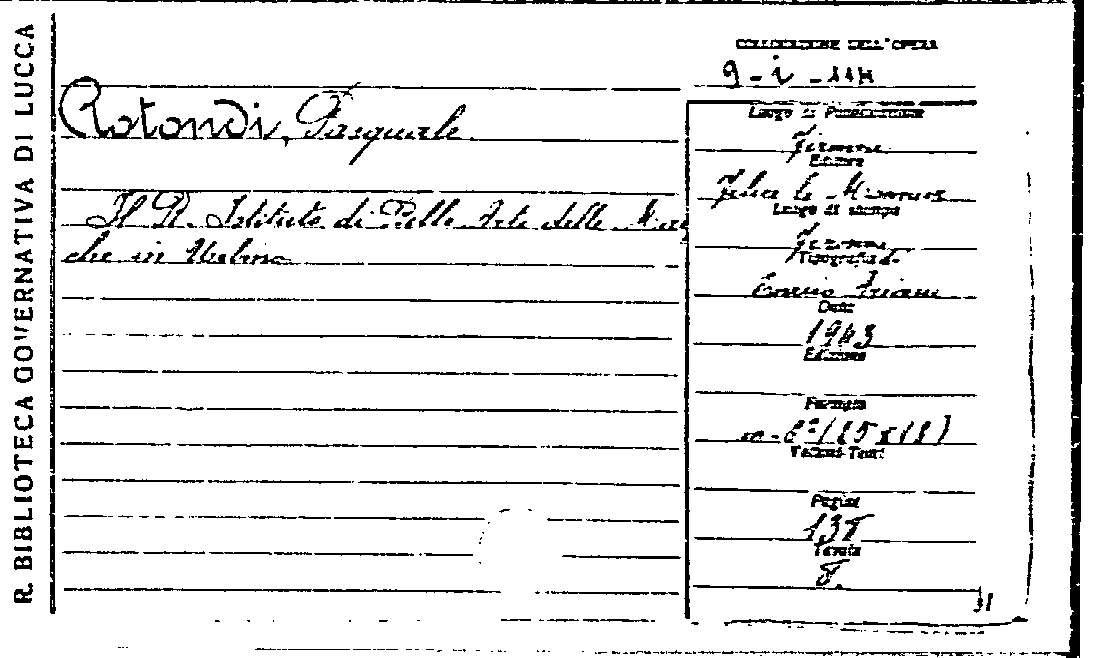 R. BIBLIOTECA GOVERNATIVA DI LUCCA
COLLOCAZIONE DELL'OPERA
9-i-
Rotondi, Pasquale
Il R. Istituto di Belle Arte delle Mar
che in Urbino
Luogo di Pubblicazione
Firenze
Editore
Felice le Monnier
Luogo di stampa
Firenze
Tipografia
Ennio Ariani
Data
1943
Edizione
Formato
in-8°
Volumi-Tomi
Pagine
Tavole